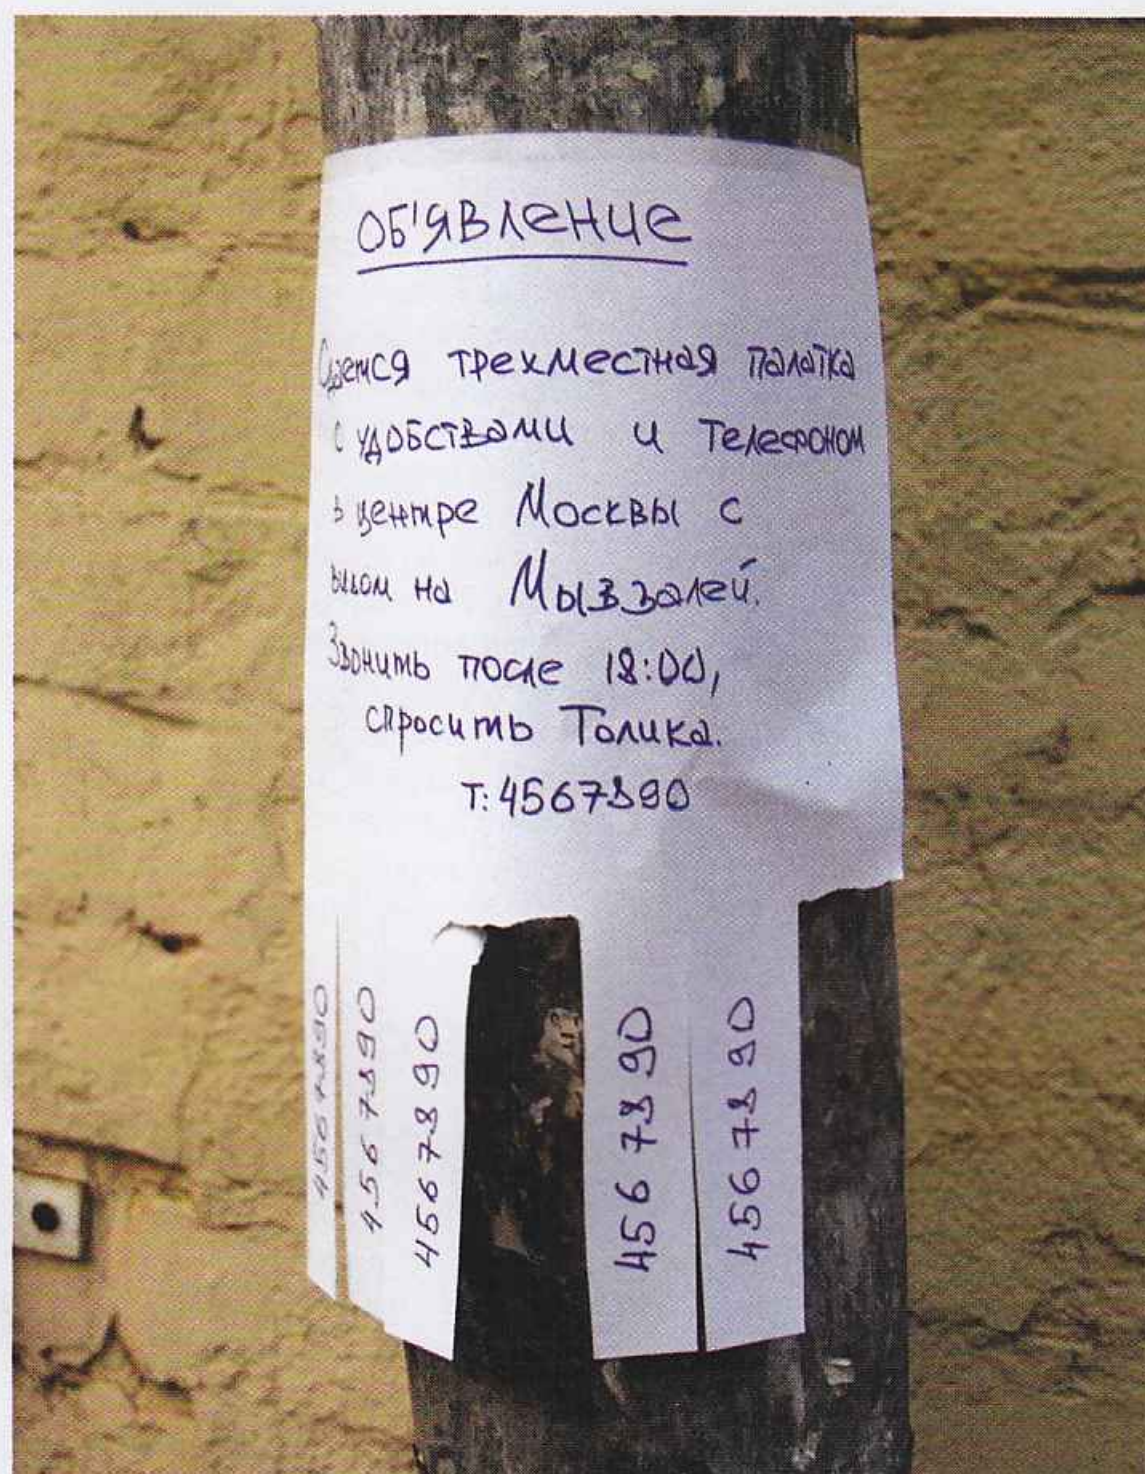 ОБ'ЯВЛЕНИЕ
Сдается трехместная палатка
с удобствами и телефоном
в центре Москвы с
видом на Мывзалей.
Звонить после 18:00,
спросить Толика.
Т: 4567890
4567890
4567890
4567890
4567890
4567890